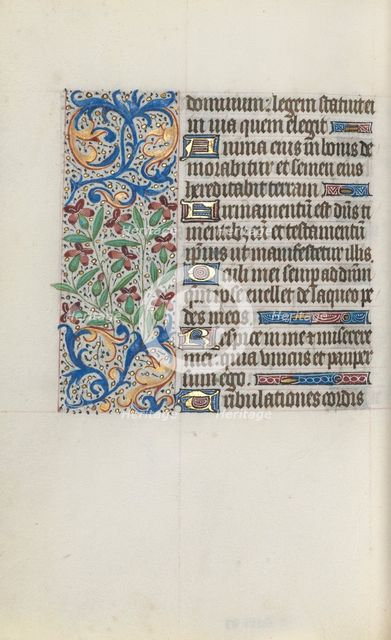 dominum: legem statuit ei
in uia quem elegit
Anima eius in bonis de
morabitur et semen eius
hereditabit terram
Firmamentū est dn̄s ti
mentib; eū et testamentū
ip̄ius ut manifestetur illis
Oculi mei semp ad dn̄m
ipse euellet de laqueo pe
des meos.
Respice in me et miserere
mei quia unicus et pauper
sum ego.
Tribulationes cordis
Heritage